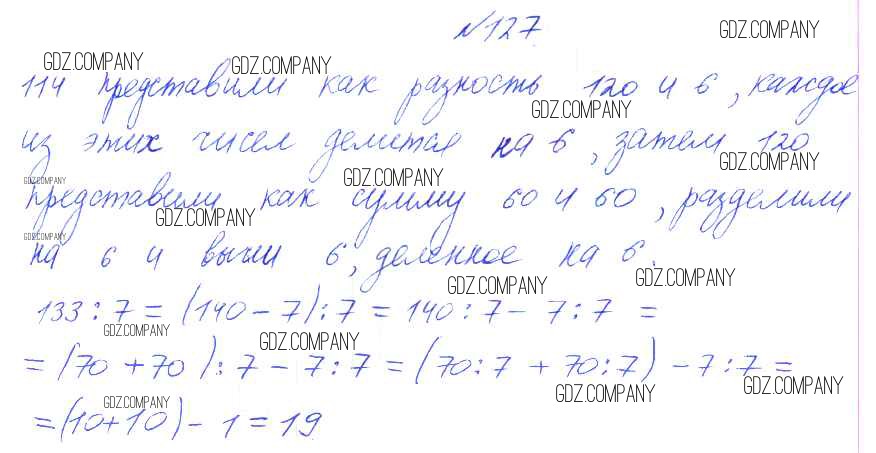 №127 GDZ.COMPANY
GDZ.COMPANY GDZ.COMPANY
114 представили как разность 120 и 6, каждое
GDZ.COMPANY
из этих чисел делится на 6, затем 120
GDZ.COMPANY
GDZ.COMPANY GDZ.COMPANY
представили как сумму 60 и 60, разделили
GDZ.COMPANY
GDZ.COMPANY
на 6 и вычли 6, деленное на 6.
GDZ.COMPANY GDZ.COMPANY
133 : 7 = (140 - 7) : 7 = 140 : 7 - 7 : 7 =
GDZ.COMPANY GDZ.COMPANY
= (70 + 70) : 7 - 7 : 7 = (70 : 7 + 70 : 7) - 7 : 7 =
GDZ.COMPANY GDZ.COMPANY GDZ.COMPANY
= (10 + 10) - 1 = 19